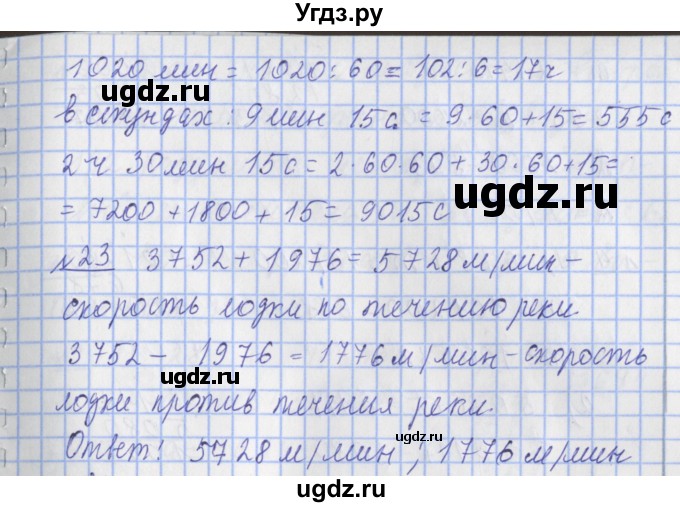 Угдз.ру
1020 мин = 1020 : 60 = 102 : 6 = 17 ч
ugdz.ru
в секундах : 9 мин 15 с = 9 · 60 + 15 = 555 с
2 ч 30 мин 15 с = 2 · 60 · 60 + 30 · 60 + 15 =
ugdz.ru
= 7200 + 1800 + 15 = 9015 с
ugdz.ru
№23 3752 + 1976 = 5728 м/мин –
скорость лодки по течению реки
3752 – 1976 = 1776 м/мин – скорость
ugdz.ru
лодки против течения реки.
ugdz.ru
Ответ: 5728 м/мин ; 1776 м/мин
ugdz.ru